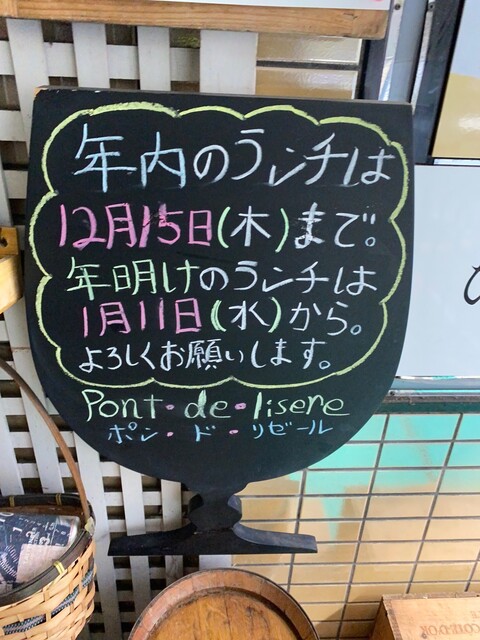 年内のランチは
12月15日(木)まで。
年明けのランチは
1月11日(水)から。
よろしくお願いします。
Pont・de・lisere
ポン・ド・リゼール